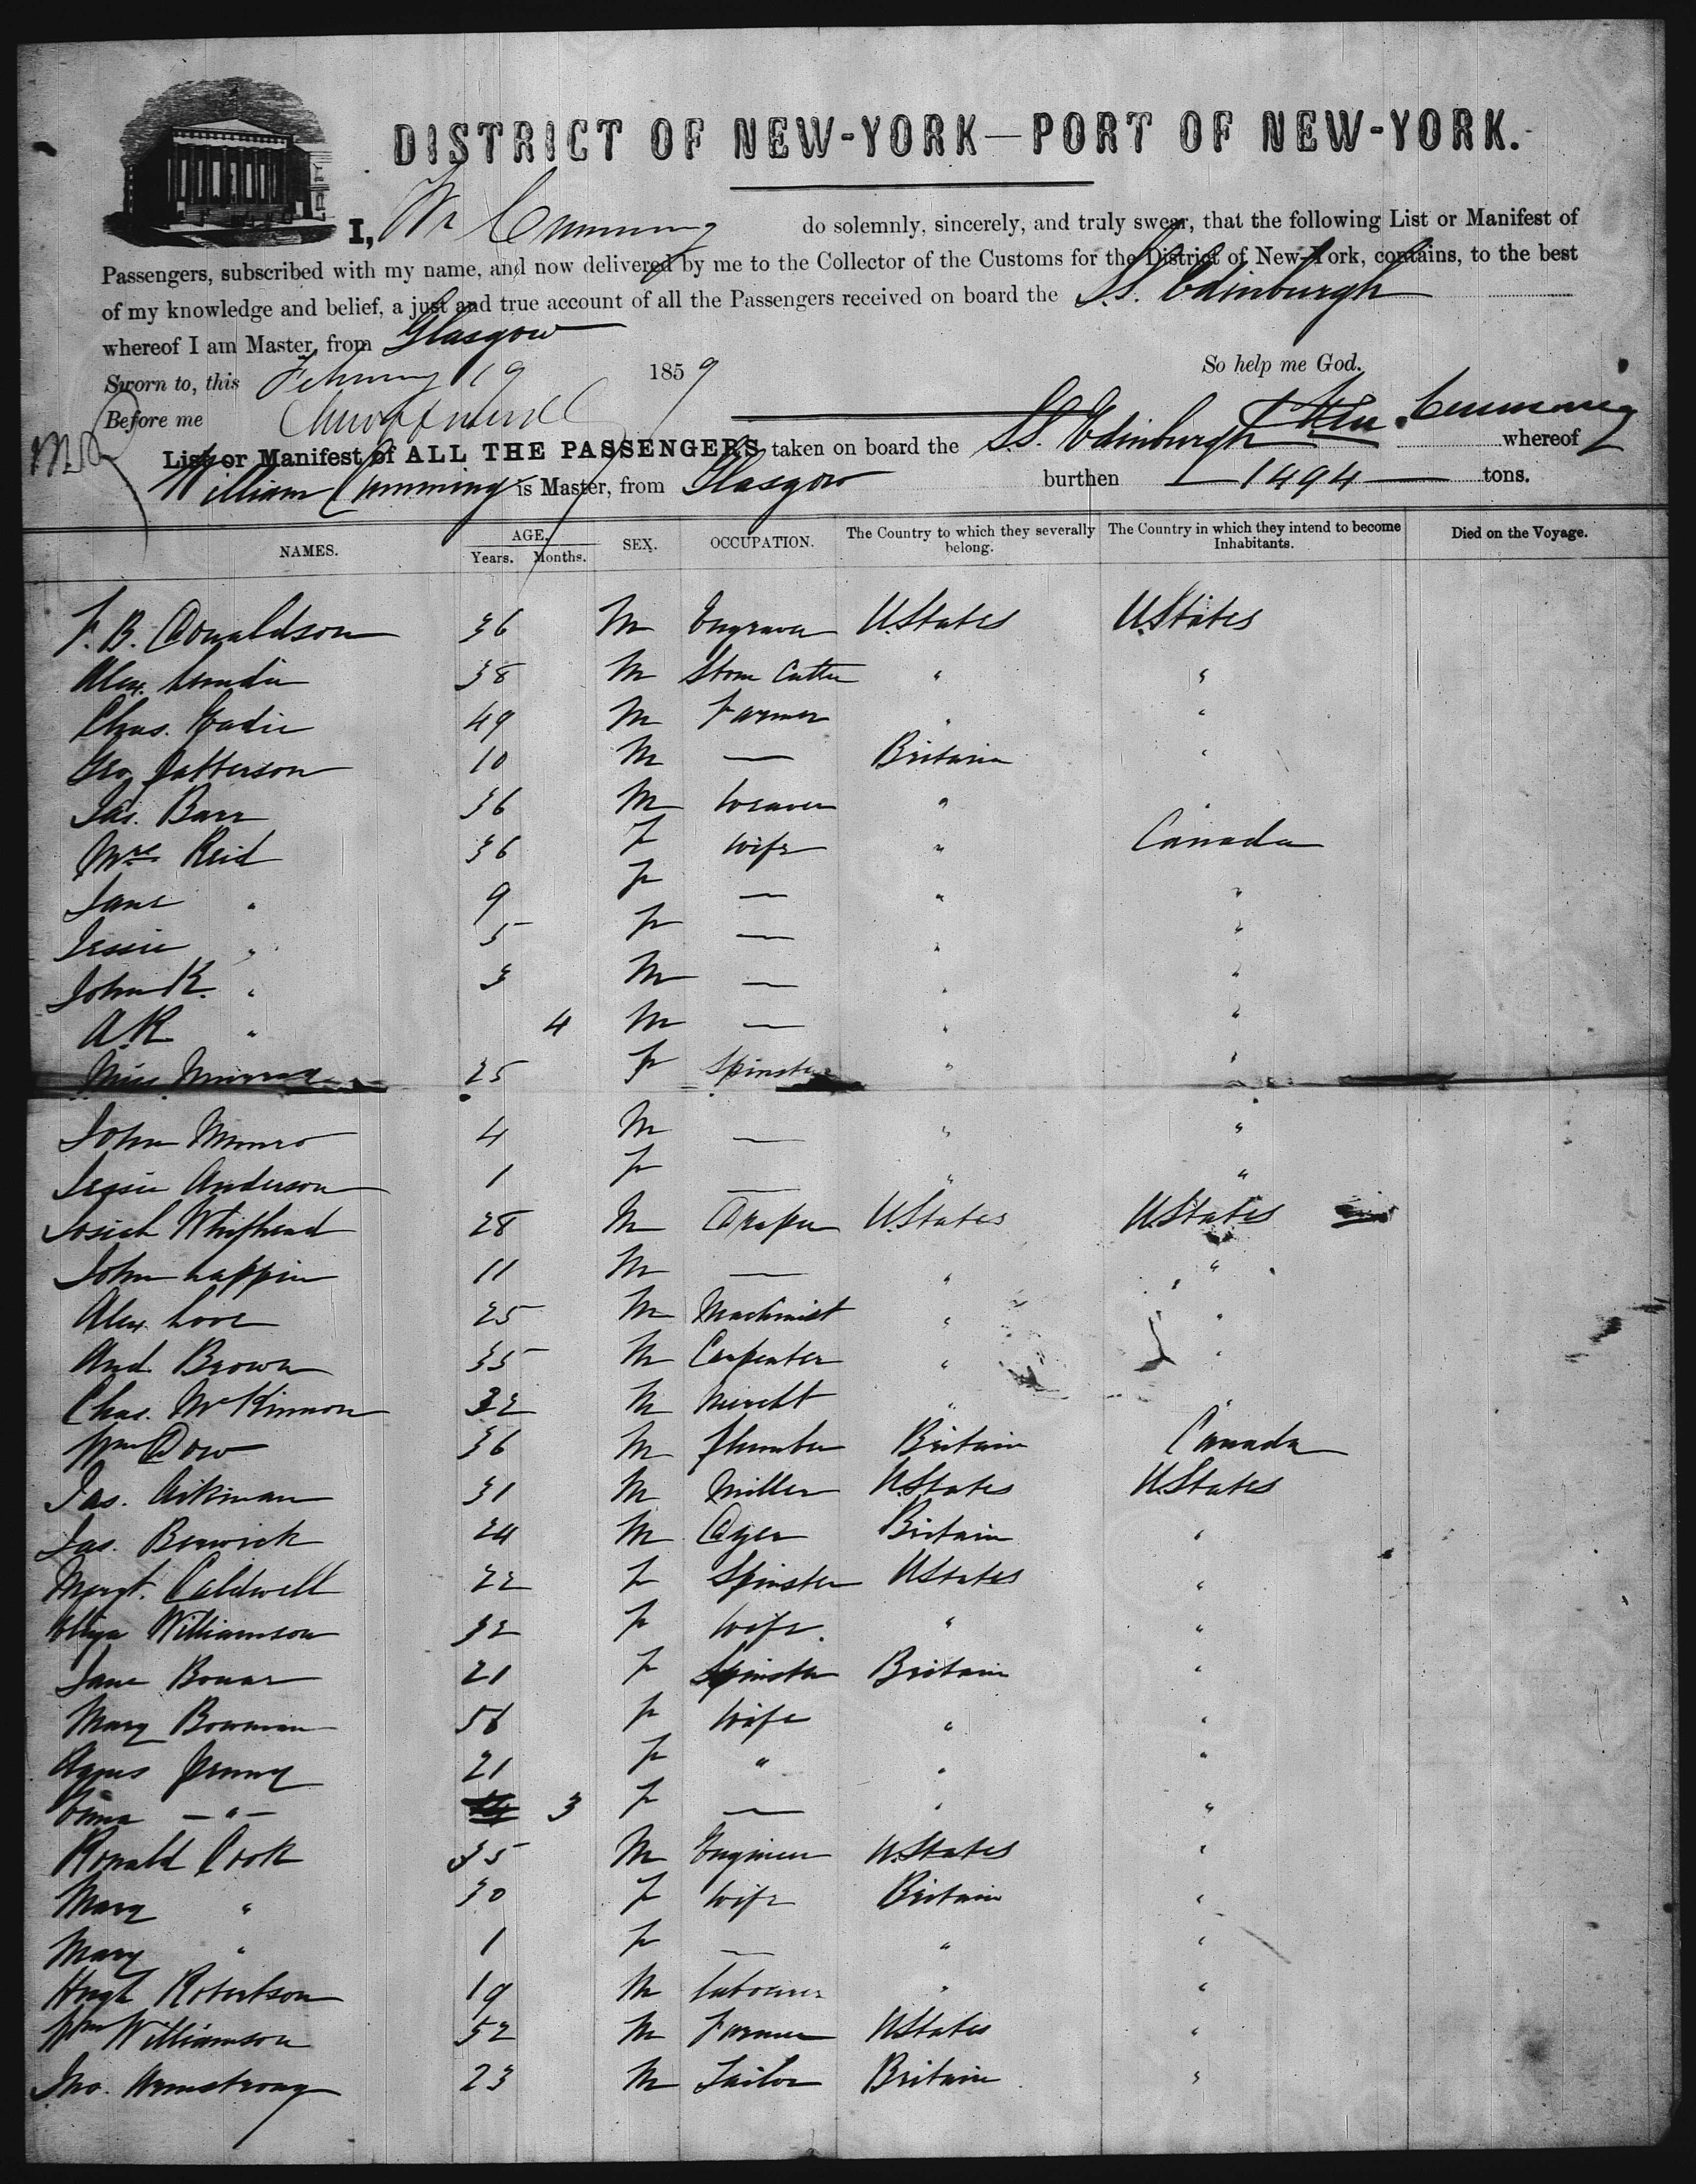 DISTRICT OF NEW-YORK—PORT OF NEW-YORK.
I, Wm Cumming do solemnly, sincerely, and truly swear, that the following List or Manifest of
Passengers, subscribed with my name, and now delivered by me to the Collector of the Customs for the District of New-York, contains, to the best
of my knowledge and belief, a just and true account of all the Passengers received on board the S.S. Edinburgh
whereof I am Master, from Glasgow
So help me God.
Sworn to, this February 19 1859
Before me
Wm. Cumming
List or Manifest of ALL THE PASSENGERS taken on board the S.S. Edinburgh whereof
William Cumming is Master, from Glasgow burthen 1494 tons.
NAMES. AGE. Years. Months. SEX. OCCUPATION. The Country to which they severally belong. The Country in which they intend to become Inhabitants. Died on the Voyage.
F. B. Donaldson 36 M Engraver U.States U.States
Alex. Lundie 38 M Stone Cutter " "
Chas. Eadie 49 M Farmer " "
Geo Patterson 10 M — Britain "
Jas. Barr 36 M Weaver " "
Mrs Reid 36 F Wife " Canada
Jane " 9 F — " "
Jessie " 5 F — " "
John K. " 3 M — " "
A.R " 4 M — " "
Miss Murray 25 F Spinster " "
John Munro 4 M — " "
Jessie Anderson 1 F — " "
Josiah Whiphead 28 M Draper U.States U.States
John Lappin 11 M — " "
Alex Love 25 M Machinist " "
And Brown 35 M Carpenter " "
Chas. McKinnon 32 M Mercht " "
Wm Dow 36 M Plumber Britain Canada
Jas. Aikman 31 M Miller U.States U.States
Jas. Berwick 24 M Dyer Britain "
Margt. Caldwell 22 F Spinster U States "
Eliza Williamson 32 F Wife " "
Jane Bonar 21 F Spinster Britain "
Mary Bowman 56 F Wife " "
Agnes Penny 21 F " " "
—"— 3 F — " "
Ronald Cook 35 M Engineer U.States "
Mary " 30 F Wife Britain "
Mary " 1 F — " "
Hugh Robertson 19 M Labourer " "
Wm Williamson 52 M Farmer U States "
Jno. Armstrong 23 M Tailor Britain "